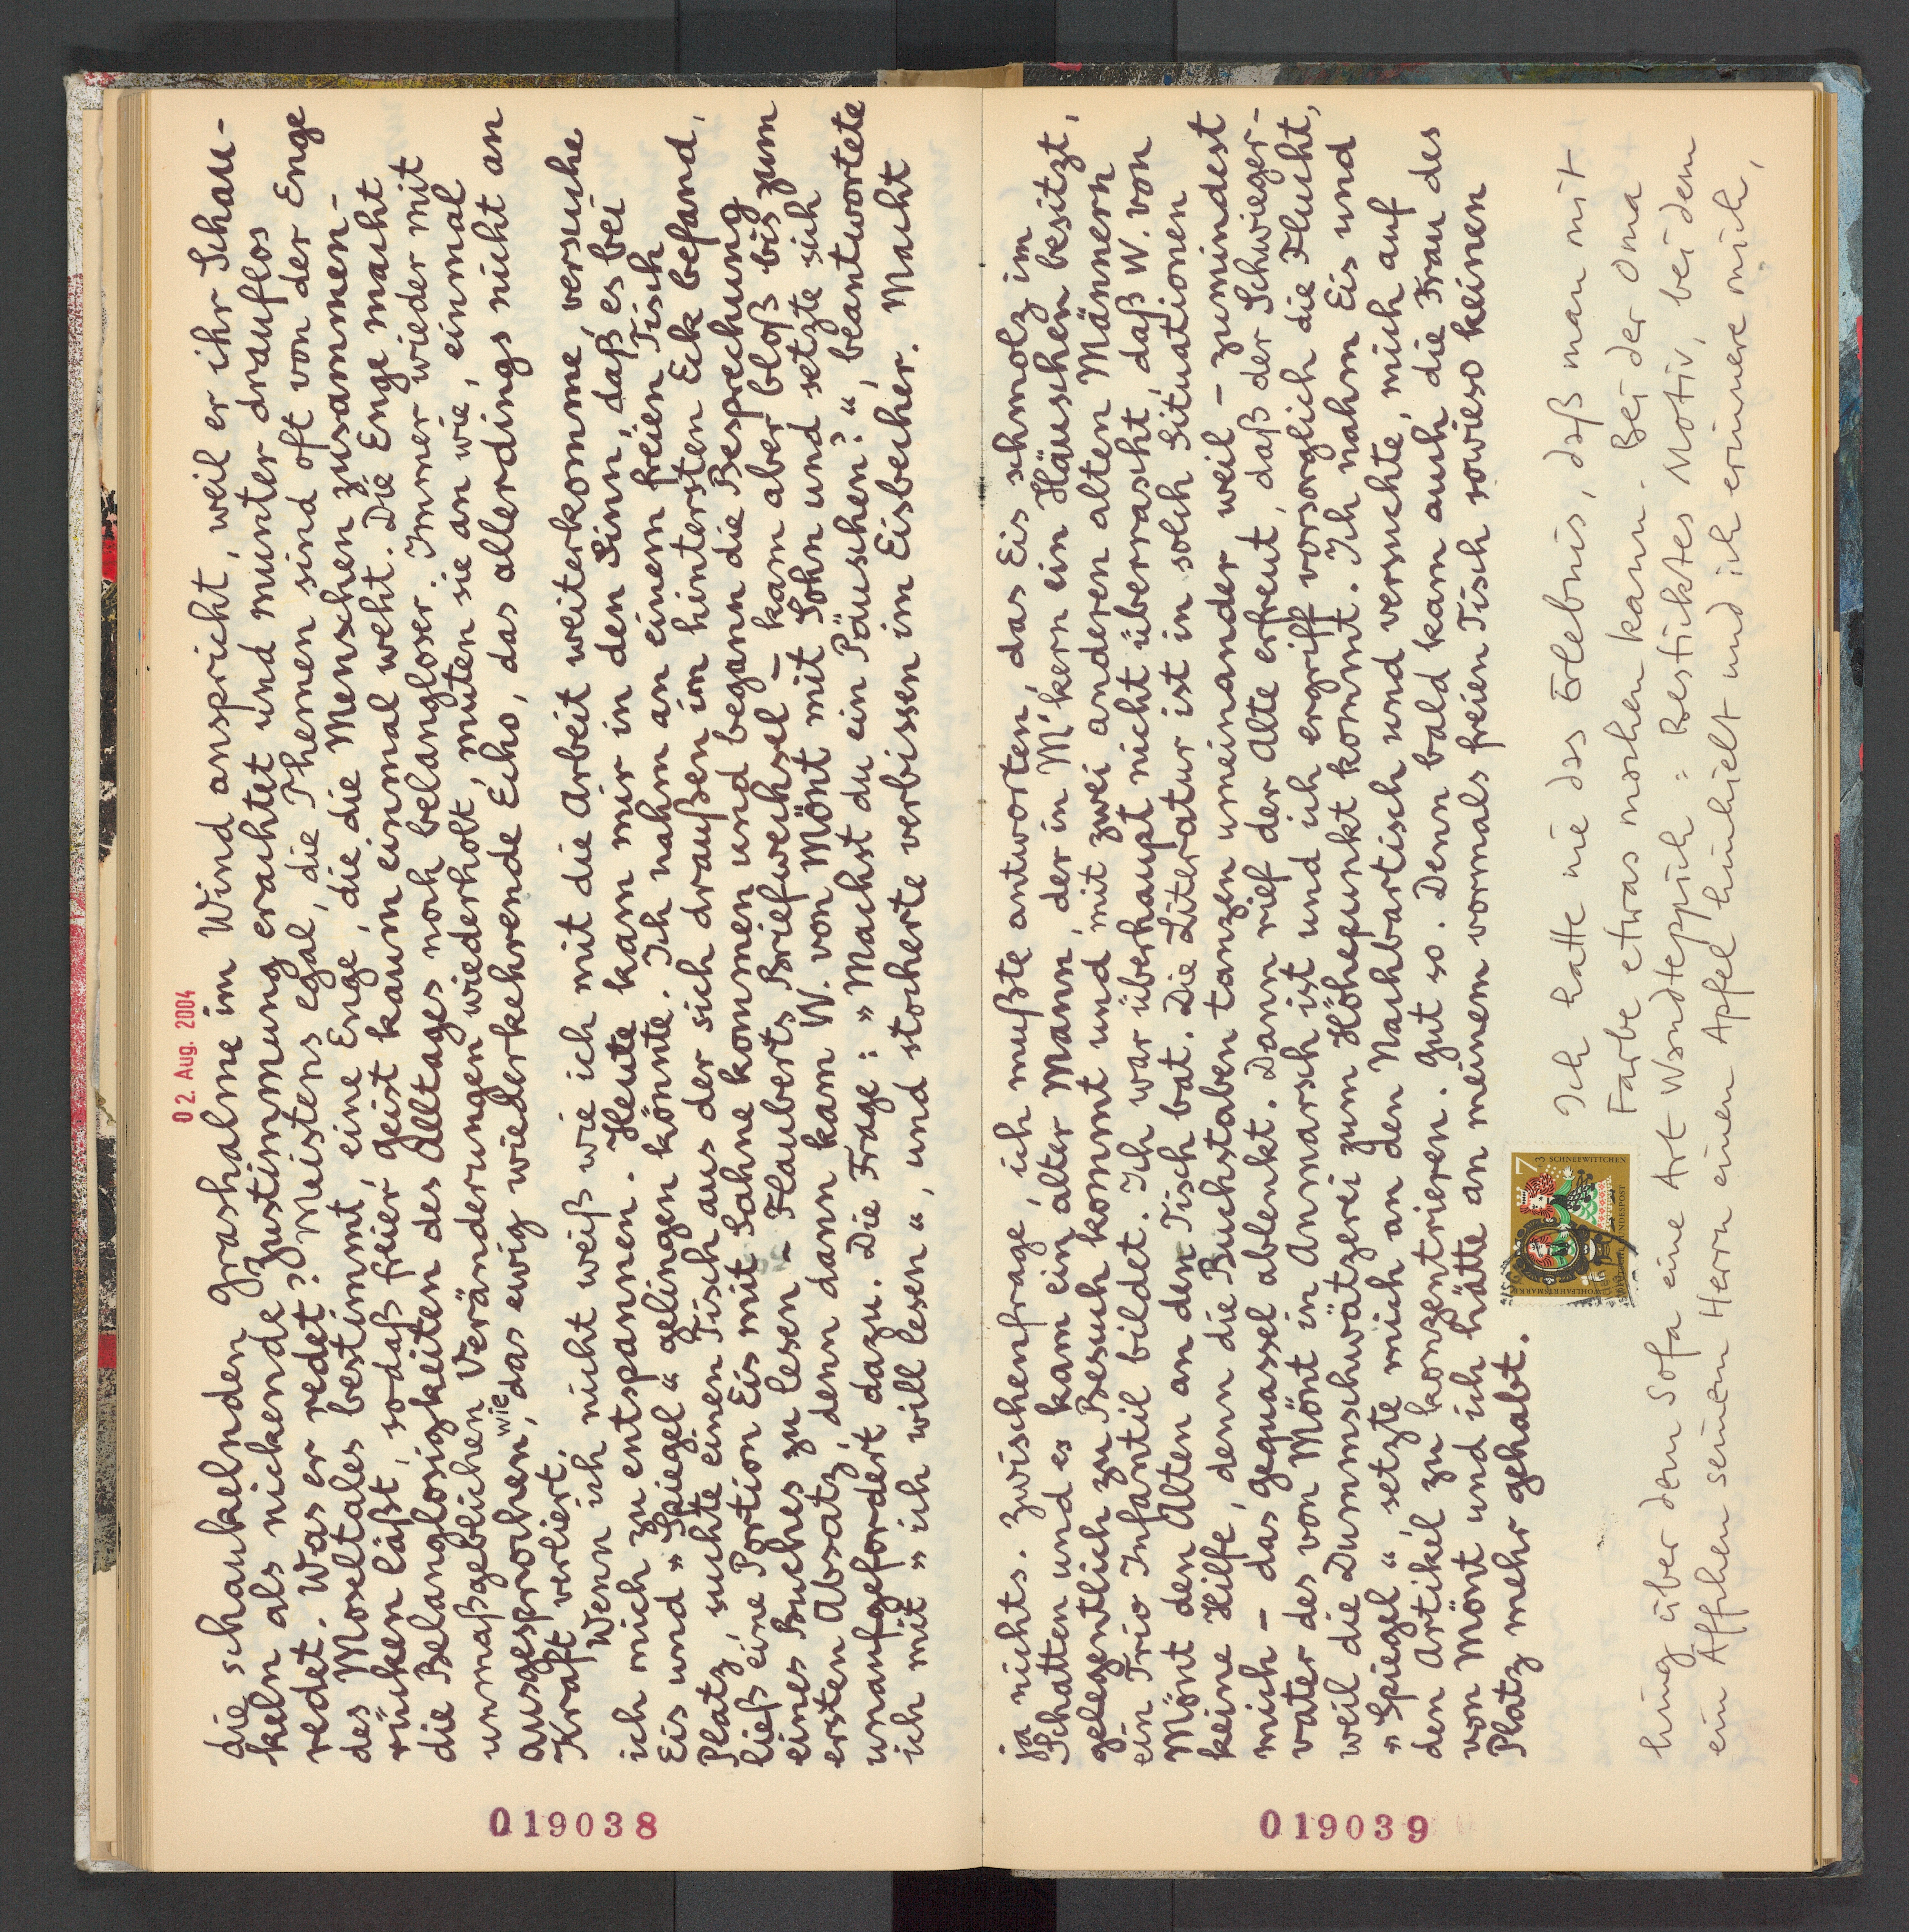 02. Aug. 2004
die schaukelnden Grashalme im Wind anspricht, weil er ihr Schau-
keln als nickende Zustimmung erachtet und munter drauflos
redet. Was er redet? Meistens egal, die Themen sind oft von der Enge
des Moseltales bestimmt, eine Enge, die die Menschen zusammen-
rücken läßt, sodaß freier Geist kaum einmal weht. Die Enge macht
die Belanglosigkeiten des Alltages noch belangloser. Immer wieder mit
unmaßgeblichen Veränderungen wiederholt, muten sie an wie, einmal
ausgesprochen, wie das ewig wiederkehrende Echo, das allerdings nicht an
Kraft verliert.
Wenn ich nicht weiß wie ich mit die Arbeit weiterkomme, versuche
ich mich zu entspannen. Heute kam mir in den Sinn, daß es bei
Eis und »Spiegel« gelingen könnte. Ich nahm an einem freien Tisch
Platz, suchte einen Tisch aus der sich draußen im hintersten Eck befand,
ließ eine Portion Eis mit Sahne kommen und begann die Besprechung
eines Buches zu lesen – Flauberts Briefwechsel – kam aber bloß bis zum
ersten Absatz, denn dann kam W. von Mönt mit Sohn und setzte sich
unaufgefordert dazu. Die Frage: »Machst du ein Päuschen?«, beantwortete
ich mit »ich will lesen«, und stocherte verbissen im Eisbecher. Macht
019038
ja nichts. Zwischenfrage, ich mußte antworten, das Eis schmolz im
Schatten und es kam ein alter Mann, der in M'kern ein Häuschen besitzt,
gelegentlich zu Besuch kommt und mit zwei anderen alten Männern
ein Trio Infantil bildet. Ich war überhaupt nicht überrascht, daß W. von
Mönt den Alten an den Tisch bat. Die Literatur ist in solch Situationen
keine Hilfe, denn die Buchstaben tanzen umeinander weil – zumindest
mich – das Gequassel ablenkt. Dann rief der Alte erfreut, daß der Schwieger-
vater des von Mönt in Anmarsch ist und ich ergriff vorsorglich die Flucht,
weil die Dummschwätzerei zum Höhepunkt kommt. Ich nahm Eis und
»Spiegel«, setzte mich an den Nachbartisch und versuchte, mich auf
den Artikel zu konzentrieren. Gut so. Denn bald kam auch die Frau des
von Mönt und ich hätte an meinem vormals freien Tisch sowieso keinen
Platz mehr gehabt.
7 +3
SCHNEEWITTCHEN
WOHLFAHRTSMARKE
DEUTSCHE BUNDESPOST
Ich hatte nie das Erlebnis, daß man mit
Farbe etwas machen kann. Bei der Oma
hing über dem Sofa eine Art Wandteppich: Besticktes Motiv, bei dem
ein Äffchen seinem Herrn einen Apfel hinhielt und ich erinnere mich,
019039